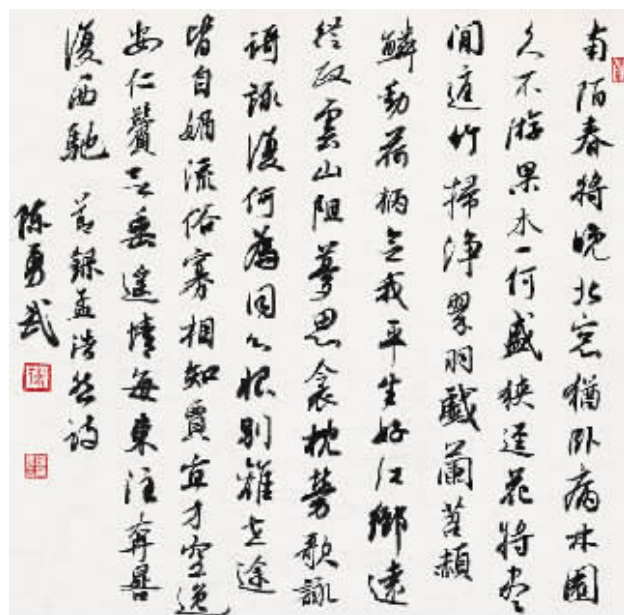 南陌春将晚北窓猶卧病林園
久不游果木一何盛狭迳花将尽
閒庭竹掃淨翠羽戲蘭苕赬
鱗動荷柄念我平生好江鄉遠
從政雲山阻夢思衾枕勞歌詠
謌詠復何為同心恨別離世途
皆自媚流俗寡相知賈誼才空逸
安仁鬢欲絲遙情每東注奔晷
復西馳 節錄孟浩然詩
陈勇武